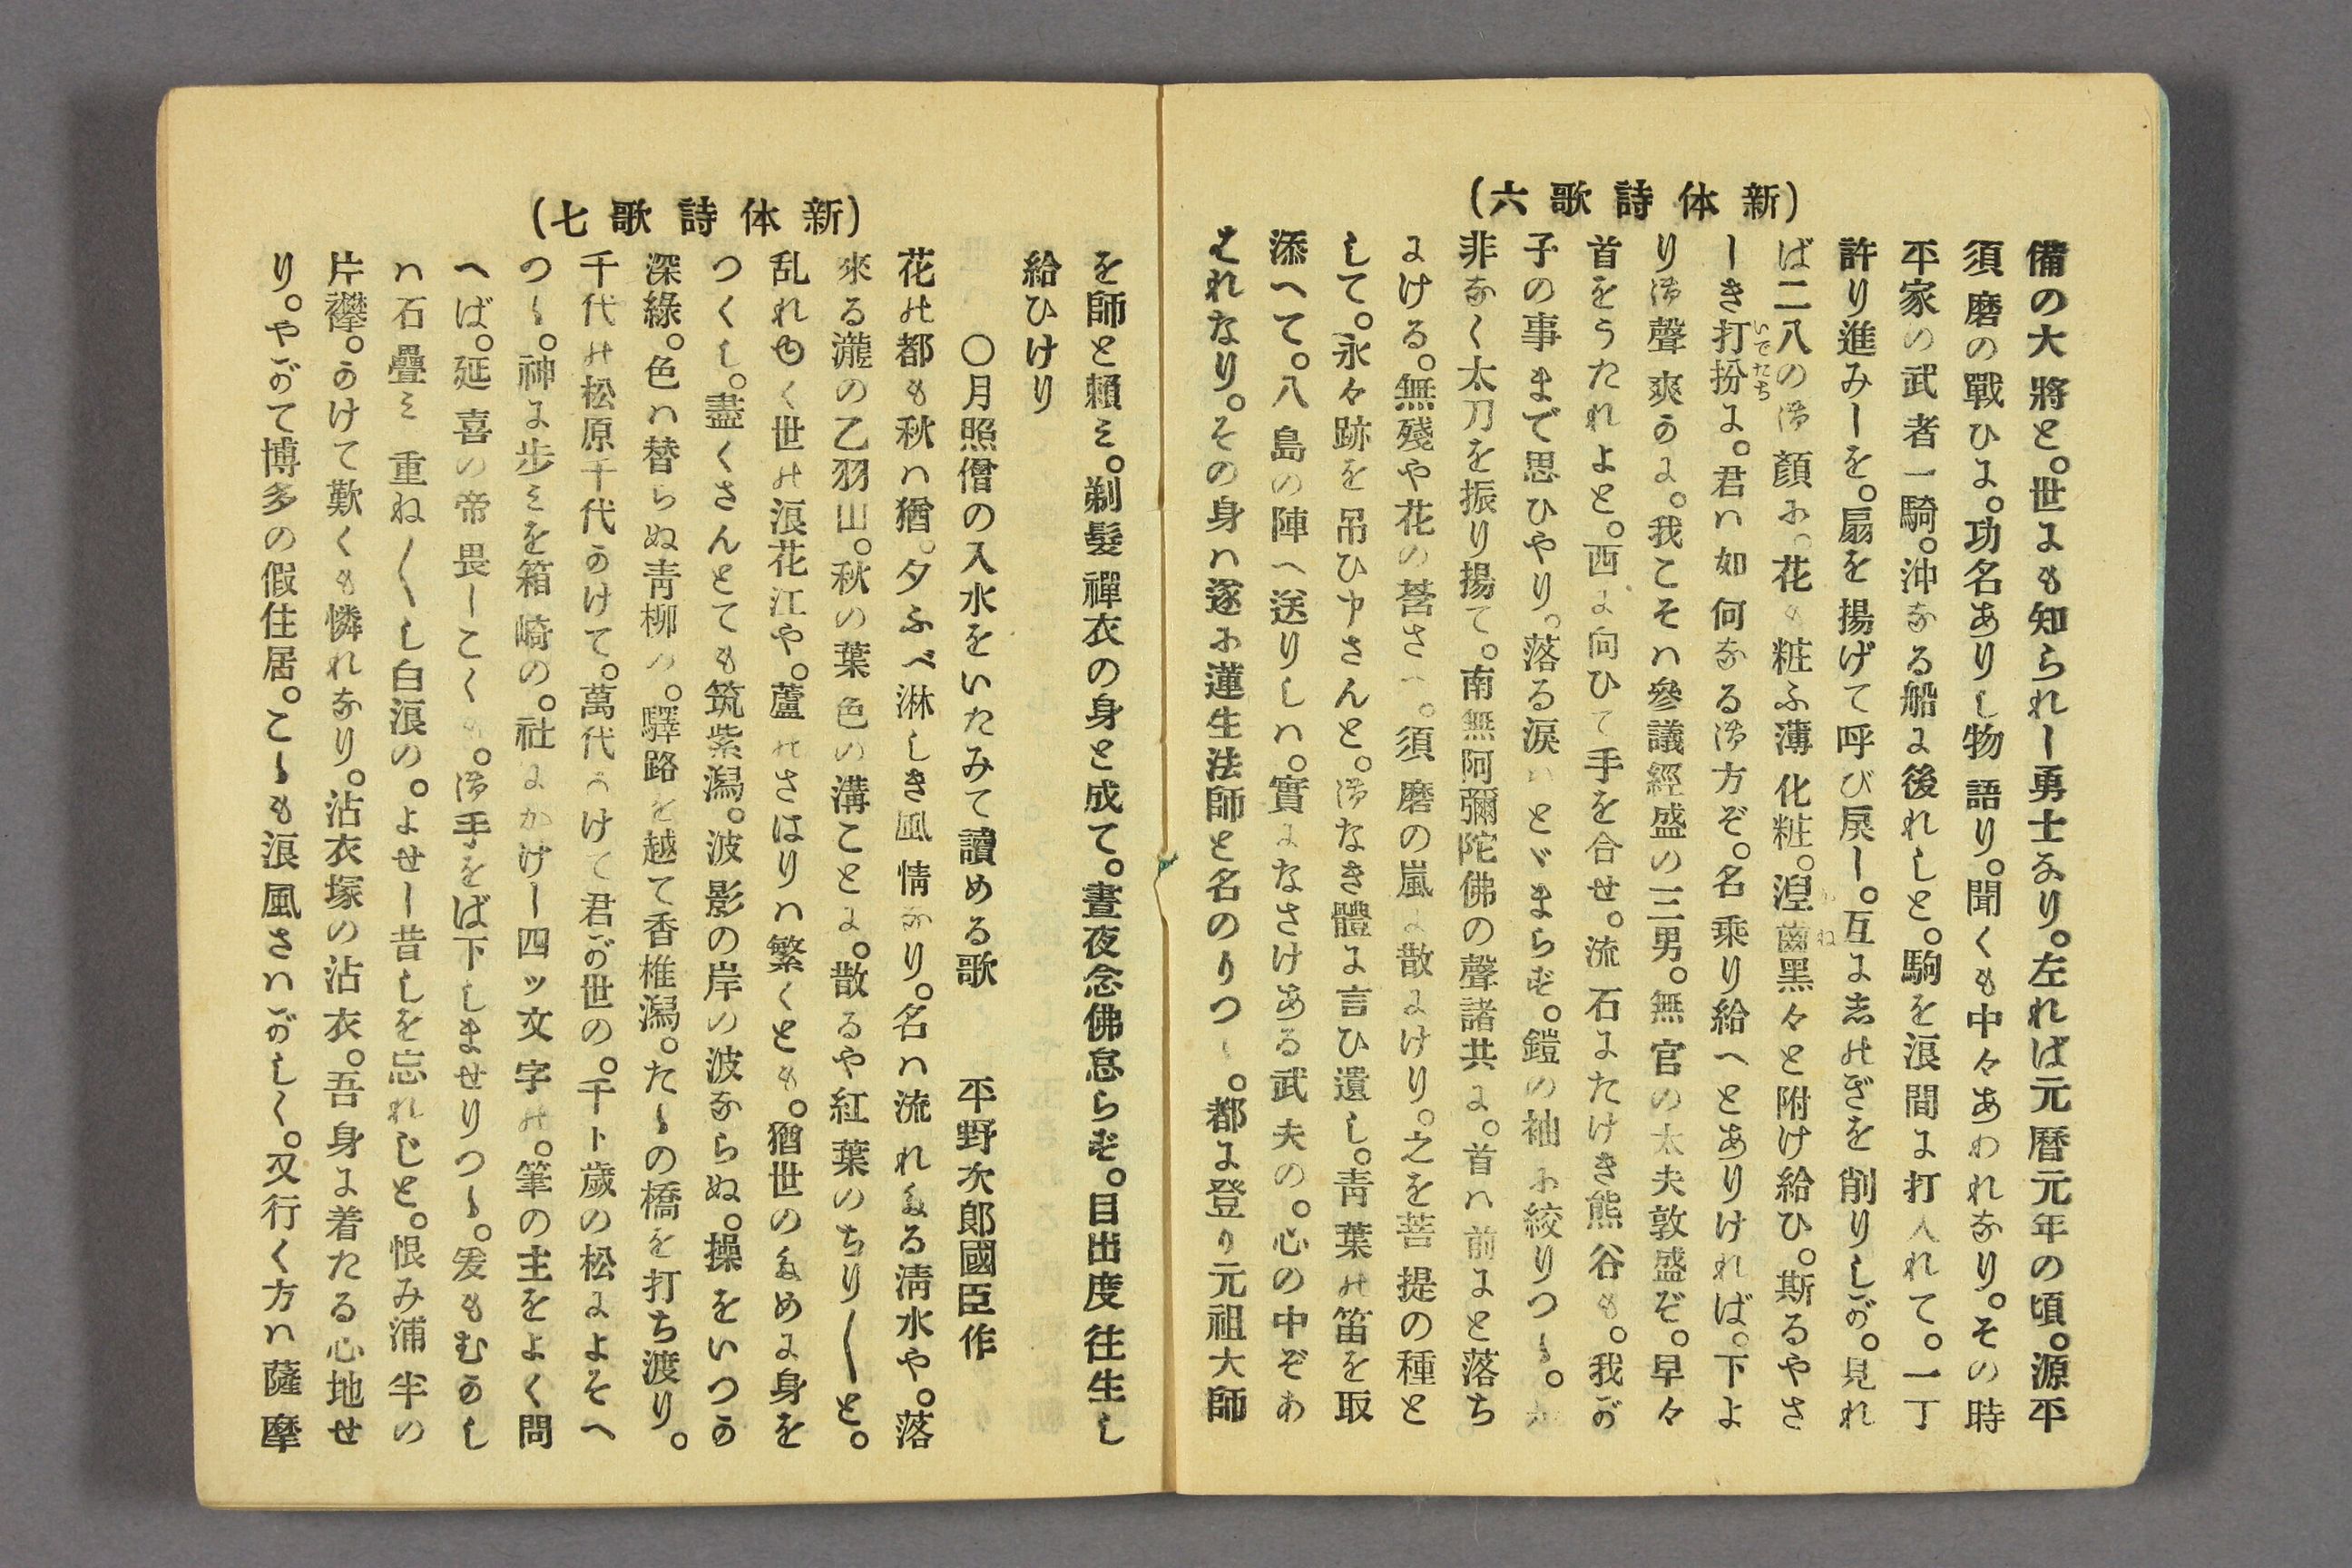 (新体詩歌六)
備の大將と。世にも知られし勇士なり。左れば元暦元年の頃。源平
須磨の戰ひに。功名ありし物語り。聞くも中々あわれなり。その時
平家の武者一騎。沖なる船に後れしと。駒を浪間に打入れて。一丁
許り進みしを。扇を揚げて呼び戻し。互に志のぎを削りしが。見れ
ば二八の御顏に。花も粧ふ薄化粧。涅齒黑々と附け給ひ。斯るやさ
しき打扮に。君ハ如何なる御方ぞ。名乘り給へとありければ。下よ
いでたち
り御聲爽かに。我こそハ參議經盛の三男。無官の太夫敦盛ぞ。早々
首をうたれよと。西に向ひて手を合せ。流石にたけき熊谷も。我が
子の事まで思ひやり。落る涙ハとゞまらず。鎧の袖に絞りつゝ。
非なく太刀を振り揚て。南無阿彌陀佛の聲諸共に。首ハ前にと落ち
にける。無殘や花の莟さへ。須磨の嵐に散にけり。之を菩提の種と
して。永々跡を吊ひ申さんと。御なき體に言ひ遺し。靑葉の笛を取
添へて。八島の陣へ送りしハ。實になさけある武夫の。心の中ぞあ
はれなり。その身ハ遂に蓮生法師と名のりつゝ。都に登り元祖大師
(新体詩歌七)
を師と賴ミ。剃髮禪衣の身と成て。晝夜念佛怠らず。目出度往生し
給ひけり
〇月照僧の入水をいたみて讀める歌　平野次郎國臣作
花の都も秋ハ猶。夕ふべ淋しき風情なり。名ハ流れたる淸水や。落
來る瀧の乙羽山。秋の葉色の溝ことに。散るや紅葉のちり〳〵と。
乱れゆく世の浪花江や。蘆のさはりハ繁くとも。猶世のために身を
つくし。盡くさんとても筑紫潟。波影の岸の波ならぬ。操をいつか
深綠。色ハ替らぬ靑柳の。驛路を越て香椎潟。たゝの橋を打ち渡り。
千代の松原千代かけて。萬代かけて君が世の。千ト歲の松によそへ
つゝ。神に步ミを箱崎の。社にかけし四ッ文字の。筆の主をよく問
へば。延喜の帝畏しこくも。御手をば下しませりつゝ。爰もむかし
ハ石疊ミ重ね〳〵し白浪の。よせし昔しを忘れじと。恨み浦半の
片襷。かけて歎くも憐れなり。沾衣塚の沾衣。吾身に着たる心地せ
り。やがて博多の假住居。こゝも浪風さハがしく。又行く方ハ薩摩